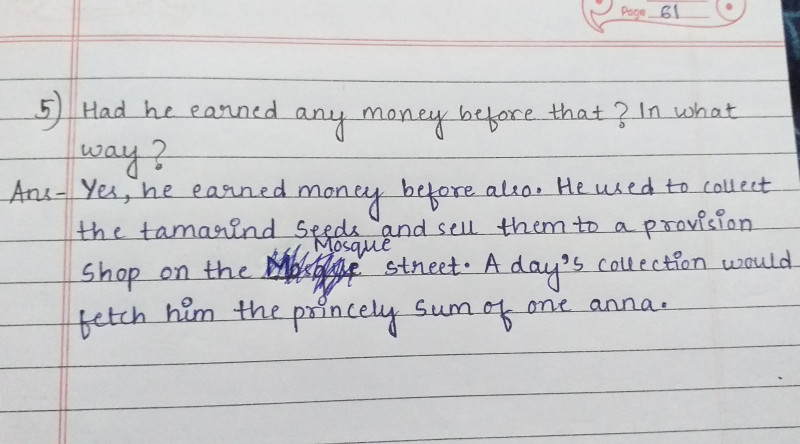 Page 61
5) Had he earned any money before that? In what
way?
Ans- Yes, he earned money before also. He used to collect
the tamarind seeds and sell them to a provision
Mosque
shop on the street. A day's collection would
fetch him the princely sum of one anna.